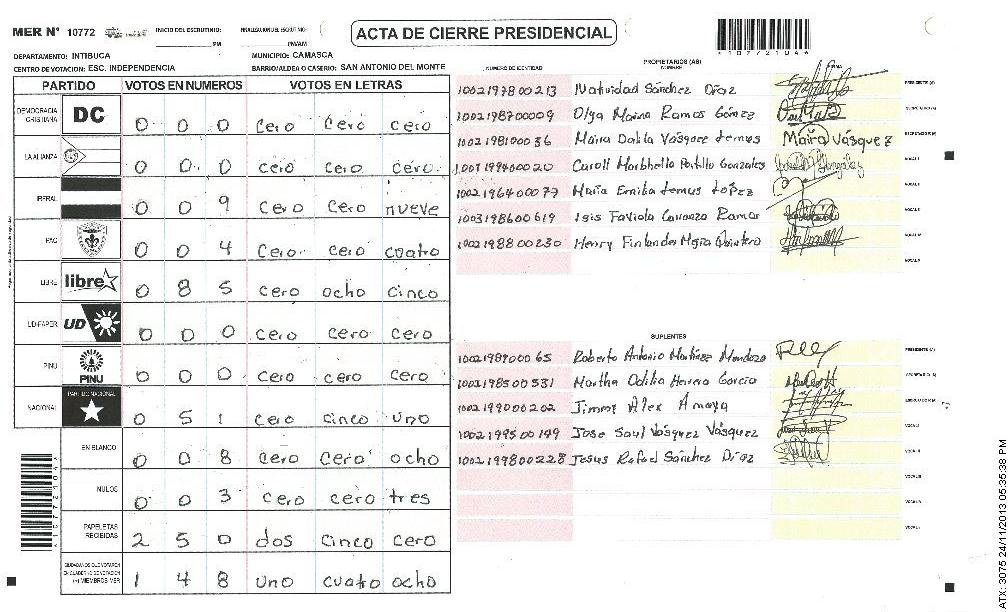 MER N° 10772 INICIO DEL ESCRUTINIO: PM FINALIZACION DEL ESCRUTINIO: PM/AM
ACTA DE CIERRE PRESIDENCIAL
DEPARTAMENTO: INTIBUCA MUNICIPIO: CAMASCA
CENTRO DE VOTACION: ESC. INDEPENDENCIA BARRIO/ALDEA O CASERIO: SAN ANTONIO DEL MONTE
PARTIDO VOTOS EN NUMEROS VOTOS EN LETRAS
DEMOCRACIA CRISTIANA DC 0 0 0 cero cero cero
LA ALIANZA 0 0 0 cero cero cero
LIBERAL 0 0 9 cero cero nueve
PAC 0 0 4 cero cero cuatro
LIBRE libre 0 8 5 cero ocho cinco
UD-FAPER UD 0 0 0 cero cero cero
PINU PINU 0 0 0 cero cero cero
NACIONAL PARTIDO NACIONAL 0 5 1 cero cinco uno
EN BLANCO 0 0 8 cero cero ocho
NULOS 0 0 3 cero cero tres
PAPELETAS RECIBIDAS 2 5 0 dos cinco cero
1 4 8 uno cuatro ocho
PROPIETARIOS (AS)
NUMERO DE IDENTIDAD NOMBRE
1002197800213 Natividad Sánchez Díaz PRESIDENTE (A)
1002198700009 Olga Marina Ramos Gómez SECRETARIO (A)
1002198100036 Maira Dalila Vásquez Lemus Maira Vásquez ESCRUTADOR (A)
Caroll Portillo Gonzales VOCAL I
1002196400077 María Emilia Lemus López VOCAL II
1003198600619 Isis Faviola Carranza Ramos
1002198800230 Henry Mejía Quintero
SUPLENTES
1002198900065 Roberto Antonio Martínez Mendoza PRESIDENTE (A)
1002198500531 Martha Odilia Herrera García SECRETARIO (A)
1002199000202 Jimmy Alex Amaya ESCRUTADOR (A)
1002199500149 Jose Saul Vásquez Vásquez VOCAL I
1002199800228 Jesus Rafael Sánchez Díaz
ATX: 3075 24/11/2013 05:35:38 PM